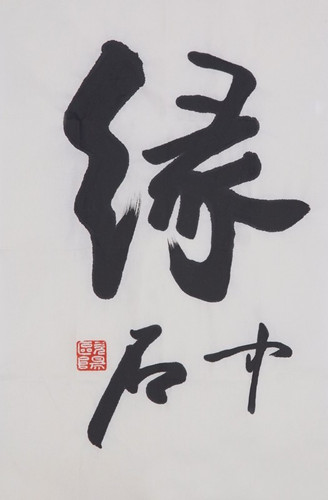 缘
中石